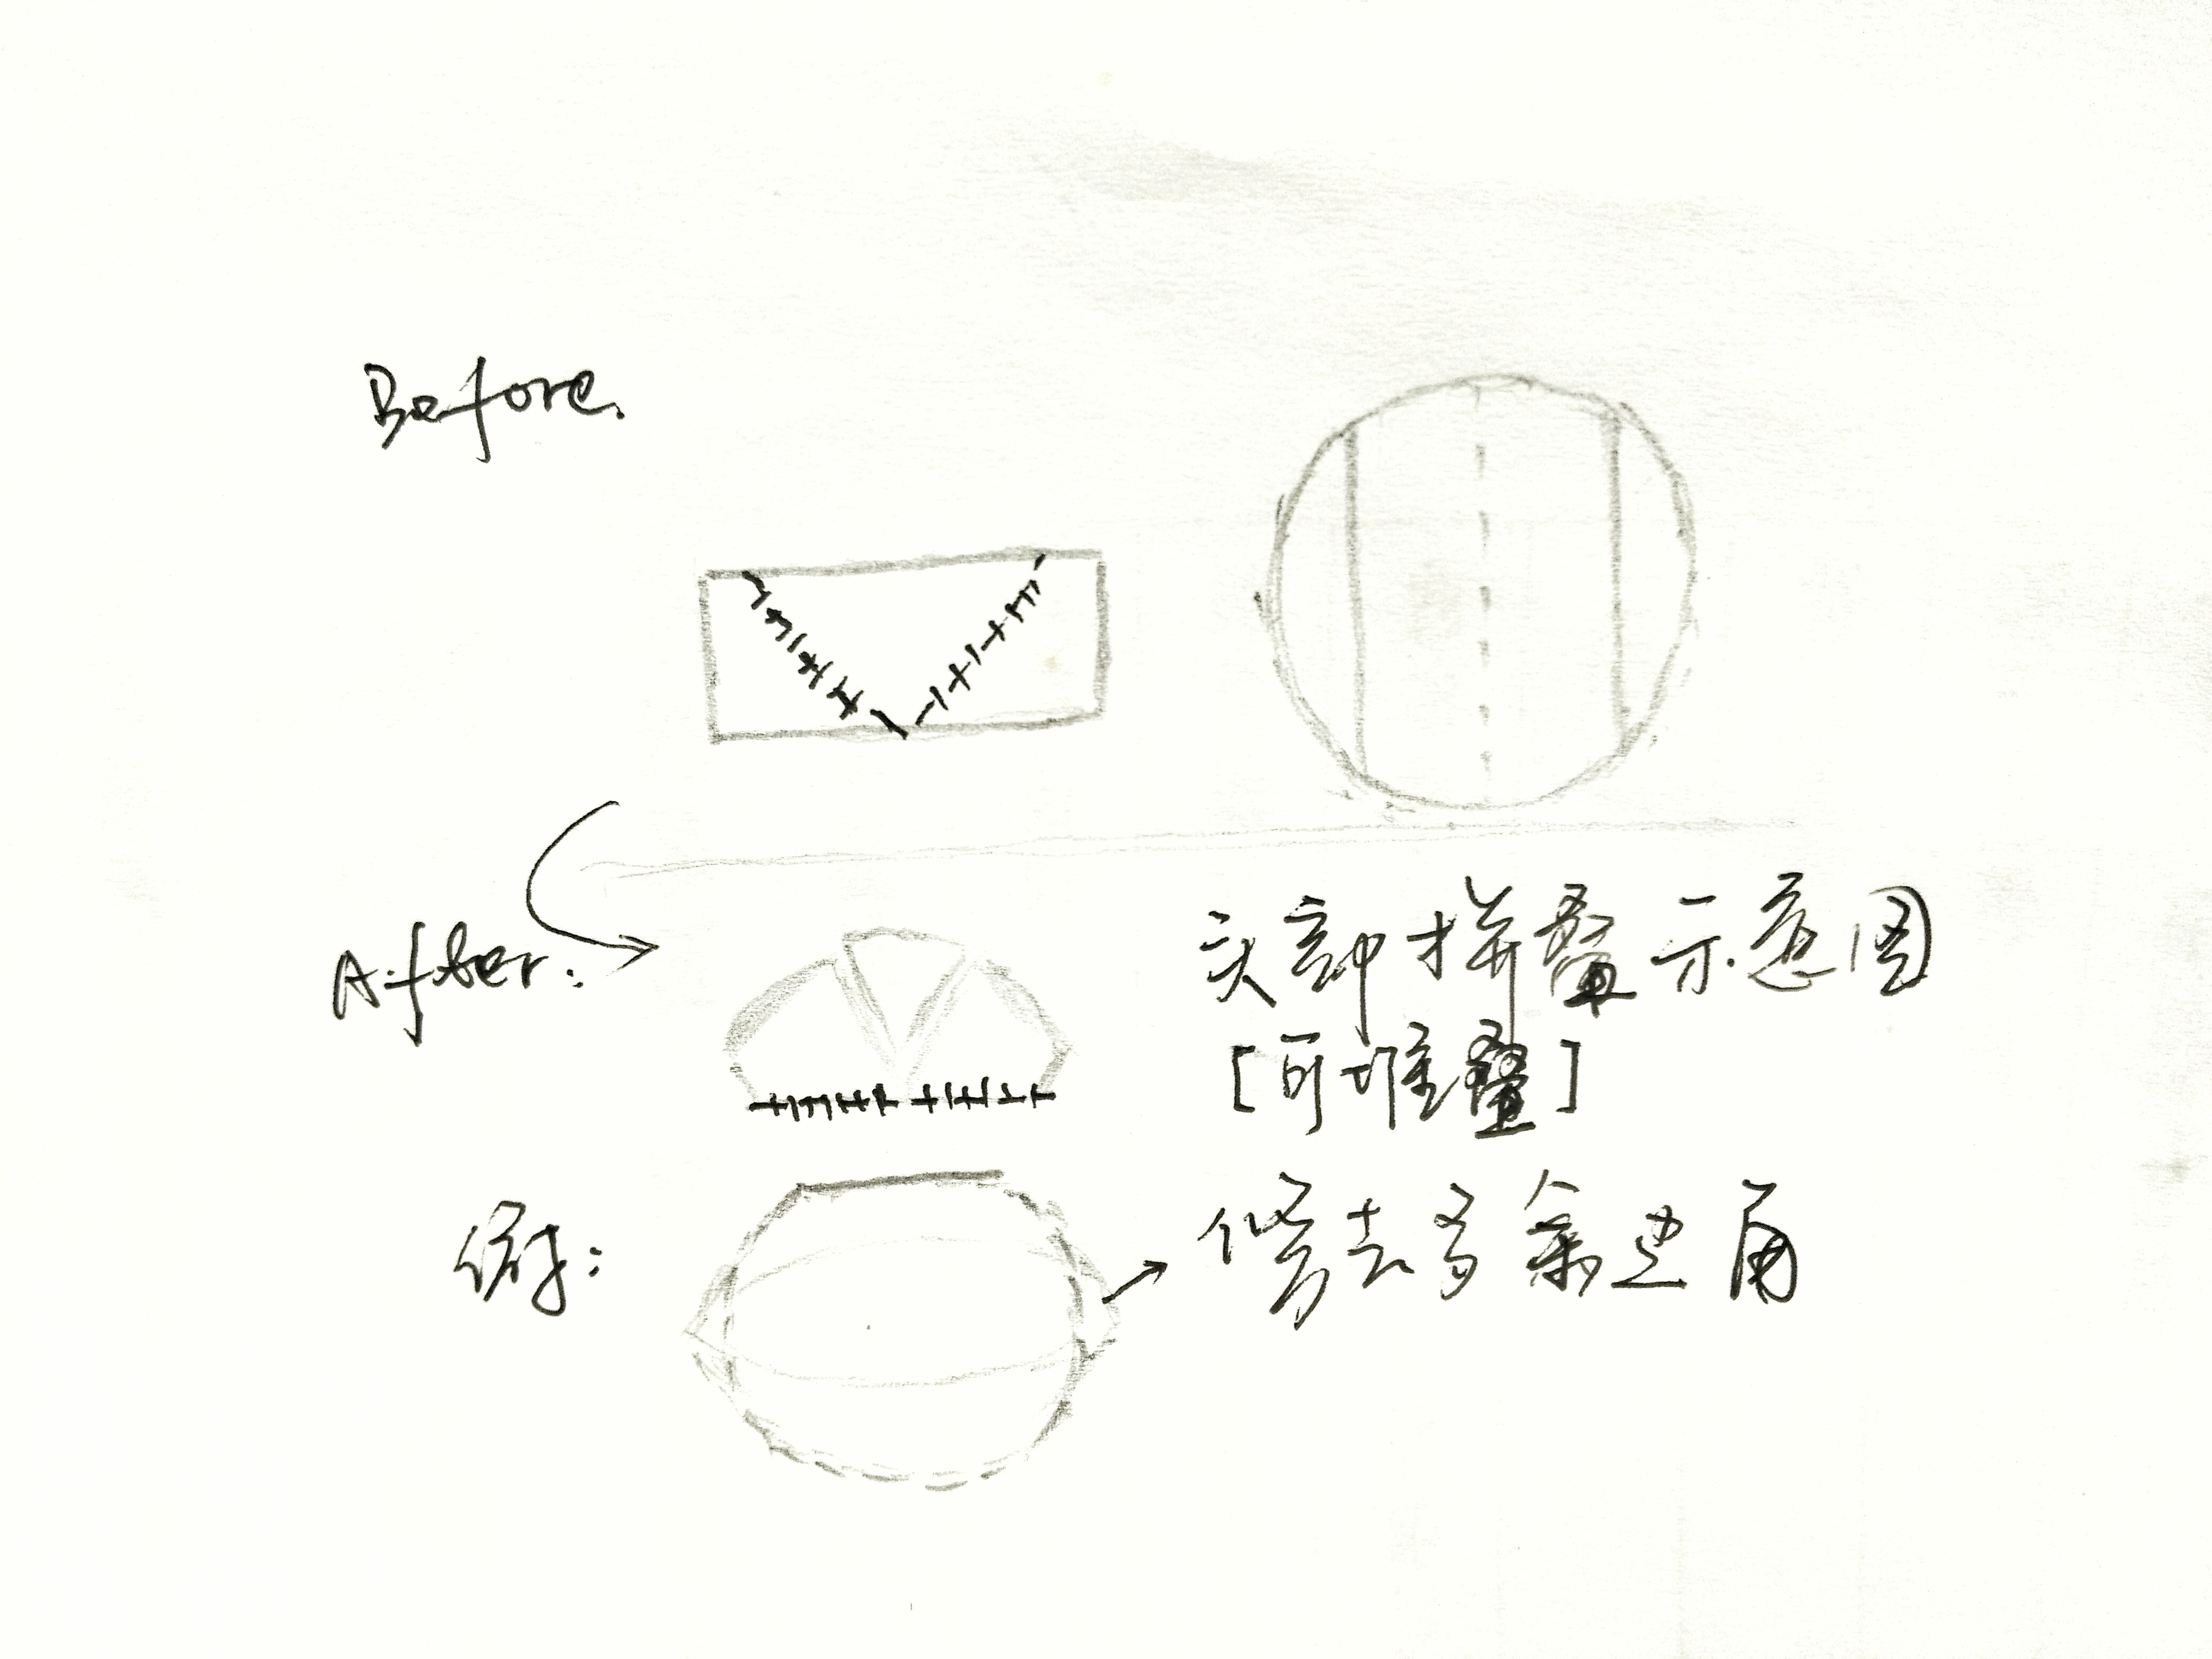 Before.
After:
头部拼叠示意图
[可堆叠]
俯:
修去多余边角